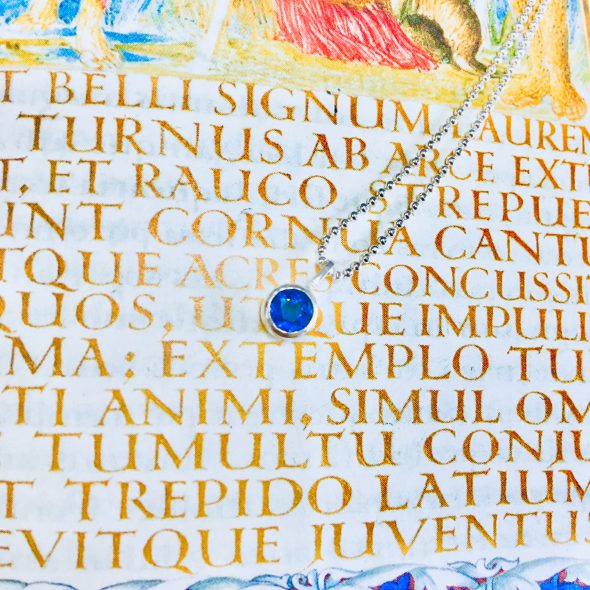 T BELLI SIGNUM LAUREN
TURNUS AB ARCE EXTU
T, ET RAUCO STREPUE
INT CORNUA CANTU
TQUE ACRES CONCUSSIT
QUOS, UTQUE IMPULI
MA: EXTEMPLO TU
TI ANIMI, SIMUL OM
TUMULTU CONJU
T TREPIDO LATIUM
EVITQUE JUVENTUS